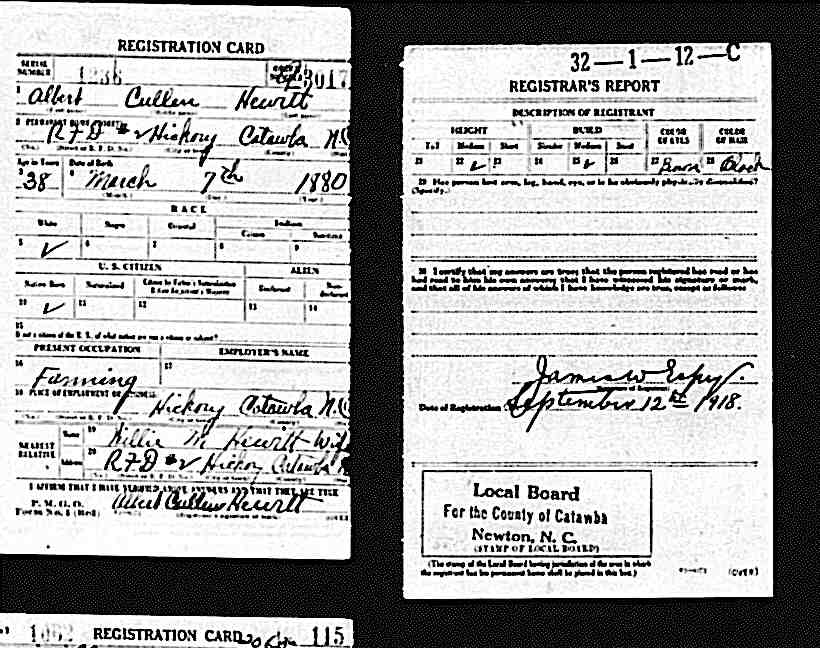 REGISTRATION CARD
SERIAL NUMBER 1236
1 Albert Cullen Hewitt
2 PERMANENT HOME ADDRESS
R-F-D #2 Hickory Catawba N.C
Age in Years Date of Birth
3 38 4 March 7th 1880
RACE
White Negro Oriental Indian
Citizen
5 ✓ 6 7 8 9
U. S. CITIZEN ALIEN
Native Born Naturalized Citizen by Father's Naturalization Before Registrant's Majority Declarant Non-declarant
10 ✓ 11 12 13 14
15
If not a citizen of the U. S., of what nation are you a citizen or subject?
PRESENT OCCUPATION EMPLOYER'S NAME
16 Farming 17
18 PLACE OF EMPLOYMENT OR BUSINESS
Hickory Catawba N.C
NEAREST RELATIVE
Name 19 M Hewitt Wif
Address 20 R-F-D #2 Hickory Catawba N
I AFFIRM THAT I HAVE VERIFIED ABOVE ANSWERS AND THAT THEY ARE TRUE
P. M. G. O.
Form No. 1 (Red) Albert Cullen Hewitt
REGISTRATION CARD 115
32—1—12—C
REGISTRAR'S REPORT
DESCRIPTION OF REGISTRANT
HEIGHT BUILD COLOR OF EYES COLOR OF HAIR
Tall Medium Short Slender Medium Stout
21 22 ✓ 23 24 25 ✓ 26 27 Brown 28 Black
29 Has person lost arm, leg, hand, eye, or is he obviously physically disqualified?
(Specify.)
30 I certify that my answers are true; that the person registered has read or has
had read to him his own answers; that I have witnessed his signature or mark,
and that all of his answers of which I have knowledge are true, except as follows:
James W Espy.
Date of Registration September 12th 1918.
Local Board
For the County of Catawba
Newton, N. C.
(STAMP OF LOCAL BOARD)
(The stamp of the Local Board having jurisdiction of the area in which
the registrant has his permanent home shall be placed in this box.)
(OVER)